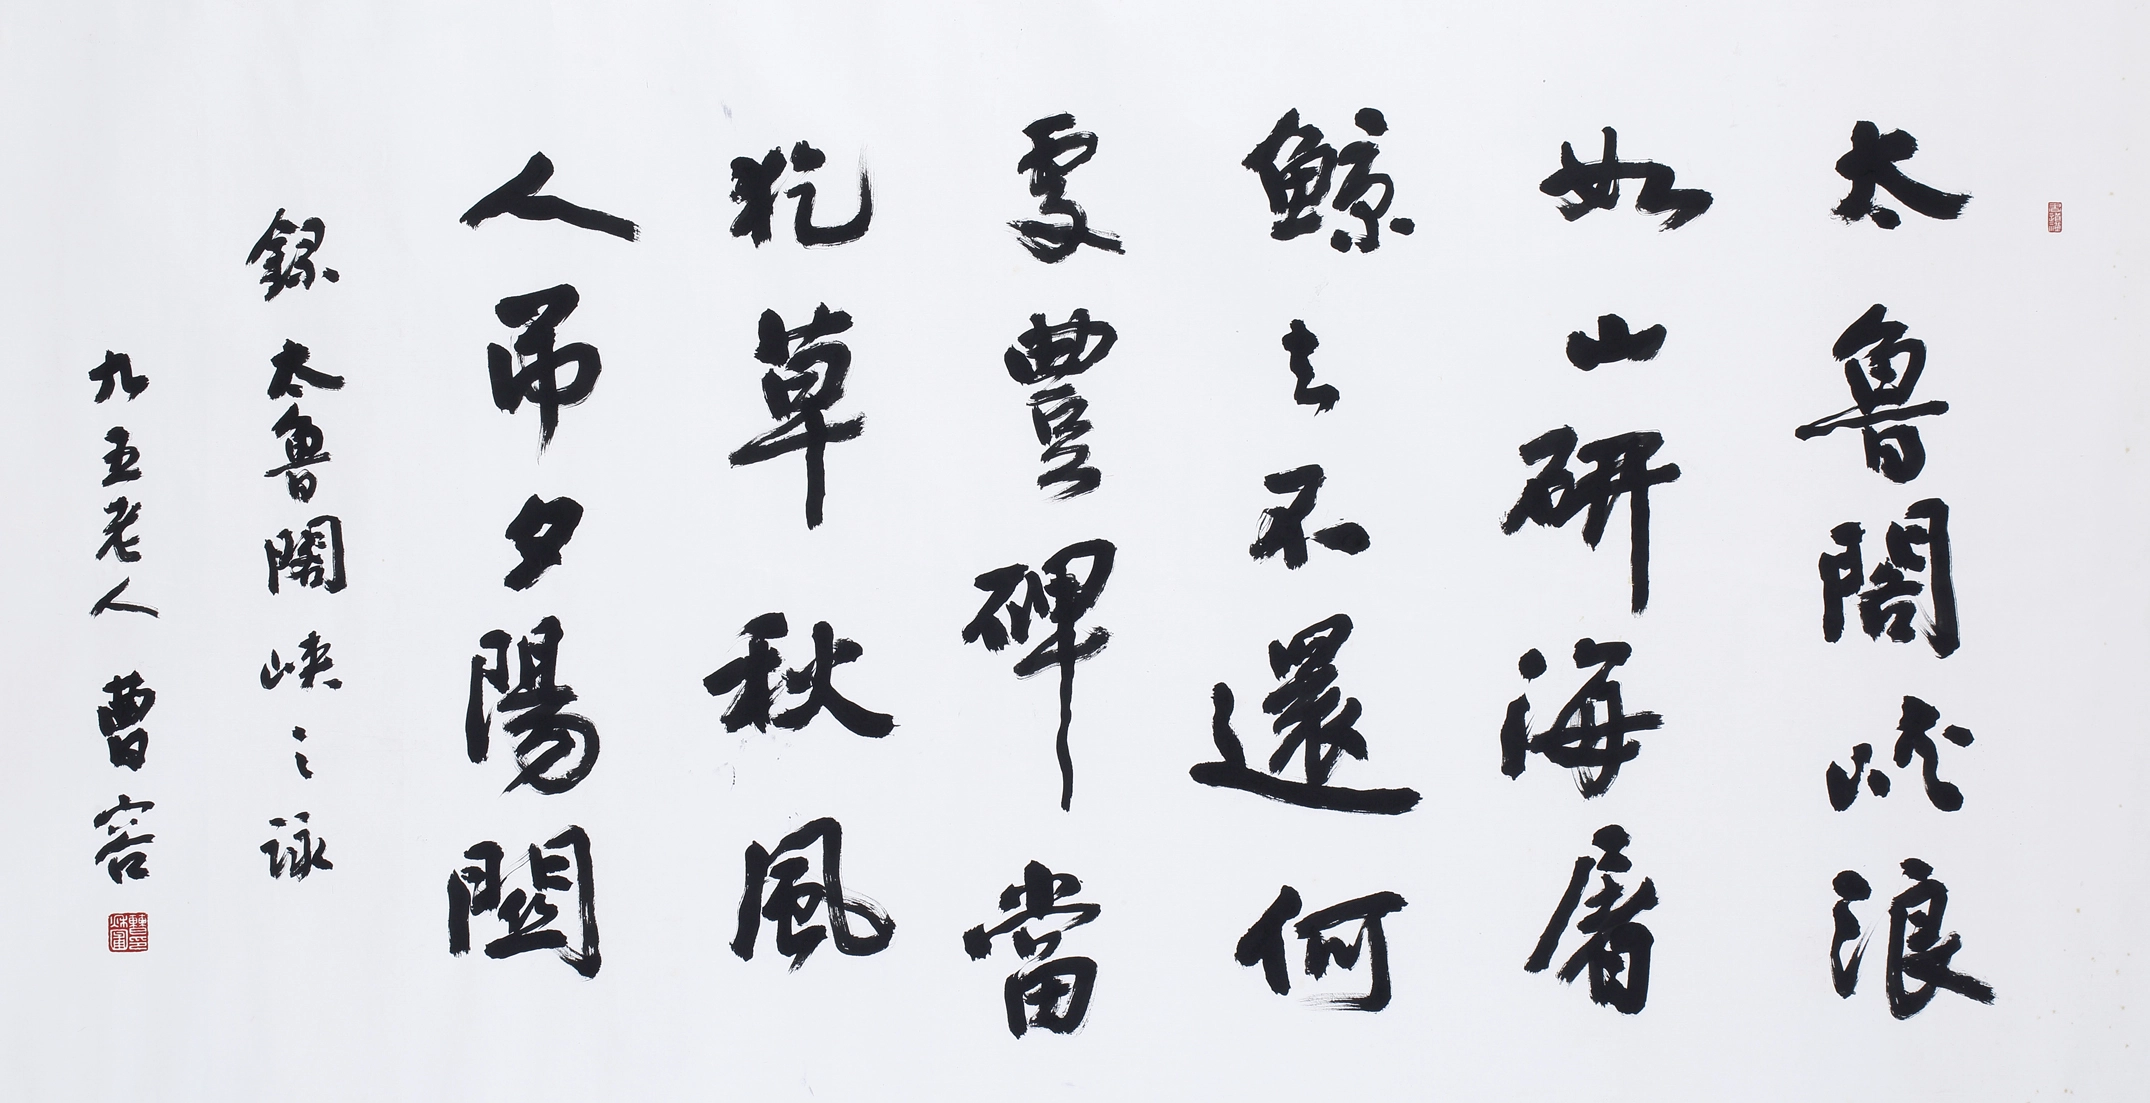 太魯閣峽浪
如山研海屠
鯨去不還何
處豐碑當
犵草秋風
人吊夕陽關
錄太魯閣峽之詠
九五老人 曹容
曹印秋圃